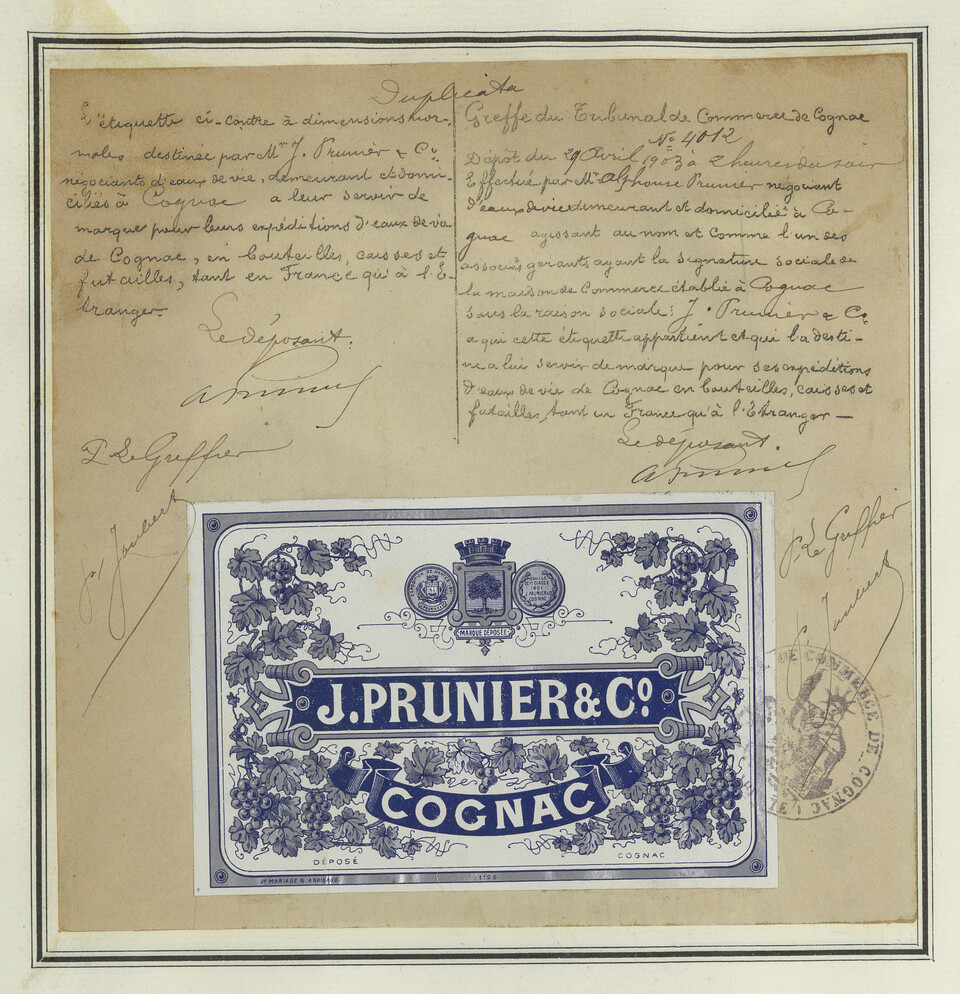 Duplicata
L'étiquette ci-contre à dimensions nor-
males destinée par Mrs J. Prunier & Co.
négociants d'eaux de vie, demeurant et domi-
ciliés à Cognac a leur servir de
marque pour leurs expéditions d'eaux de vie
de Cognac, en bouteilles, caisses et
futailles, tant en France qu'à l'E-
tranger.
Le déposant.
A Prunier
P. Le Greffier
Joubert
Greffe du Tribunal de Commerce de Cognac
No 4012
Dépôt du 29 Avril 1903 à 2 heures du soir
Effectué par Mr Alphonse Prunier négociant
d'eaux de vie demeurant et domicilié à Co-
gnac agissant au nom et comme l'un des
associés gérants ayant la signature sociale de
la maison de Commerce établie à Cognac
sous la raison sociale: J. Prunier & Co.
a qui cette étiquette appartient et qui la desti-
ne a lui servir de marque pour ses expéditions
d'eaux de vie de Cognac en bouteilles, caisses et
futailles, tant en France qu'à l'Etranger —
Le déposant.
A Prunier
P. Le Greffier
Joubert
MARQUE DÉPOSÉE
J. PRUNIER & Co.
COGNAC
DÉPOSÉ
COGNAC
DE COMMERCE DE COGNAC